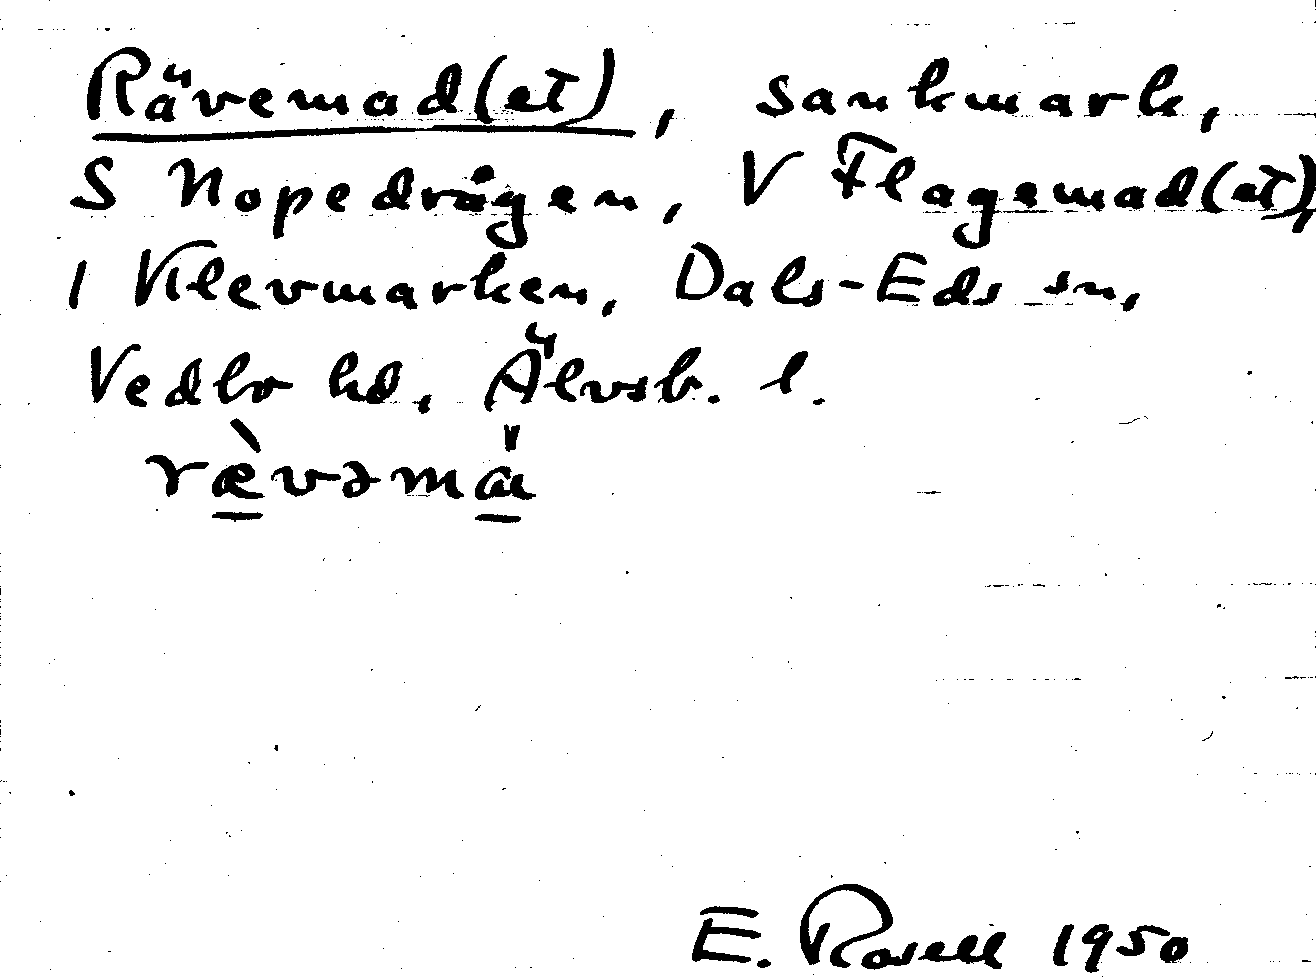 Rävemad(et), sankmark,
S Nopedrågen, V Flagemad(et),
I Klevmarken, Dals-Eds sn,
Vedbo hd, Älvsb. l.
ræ̀vəmȁ
E. Rosell 1950